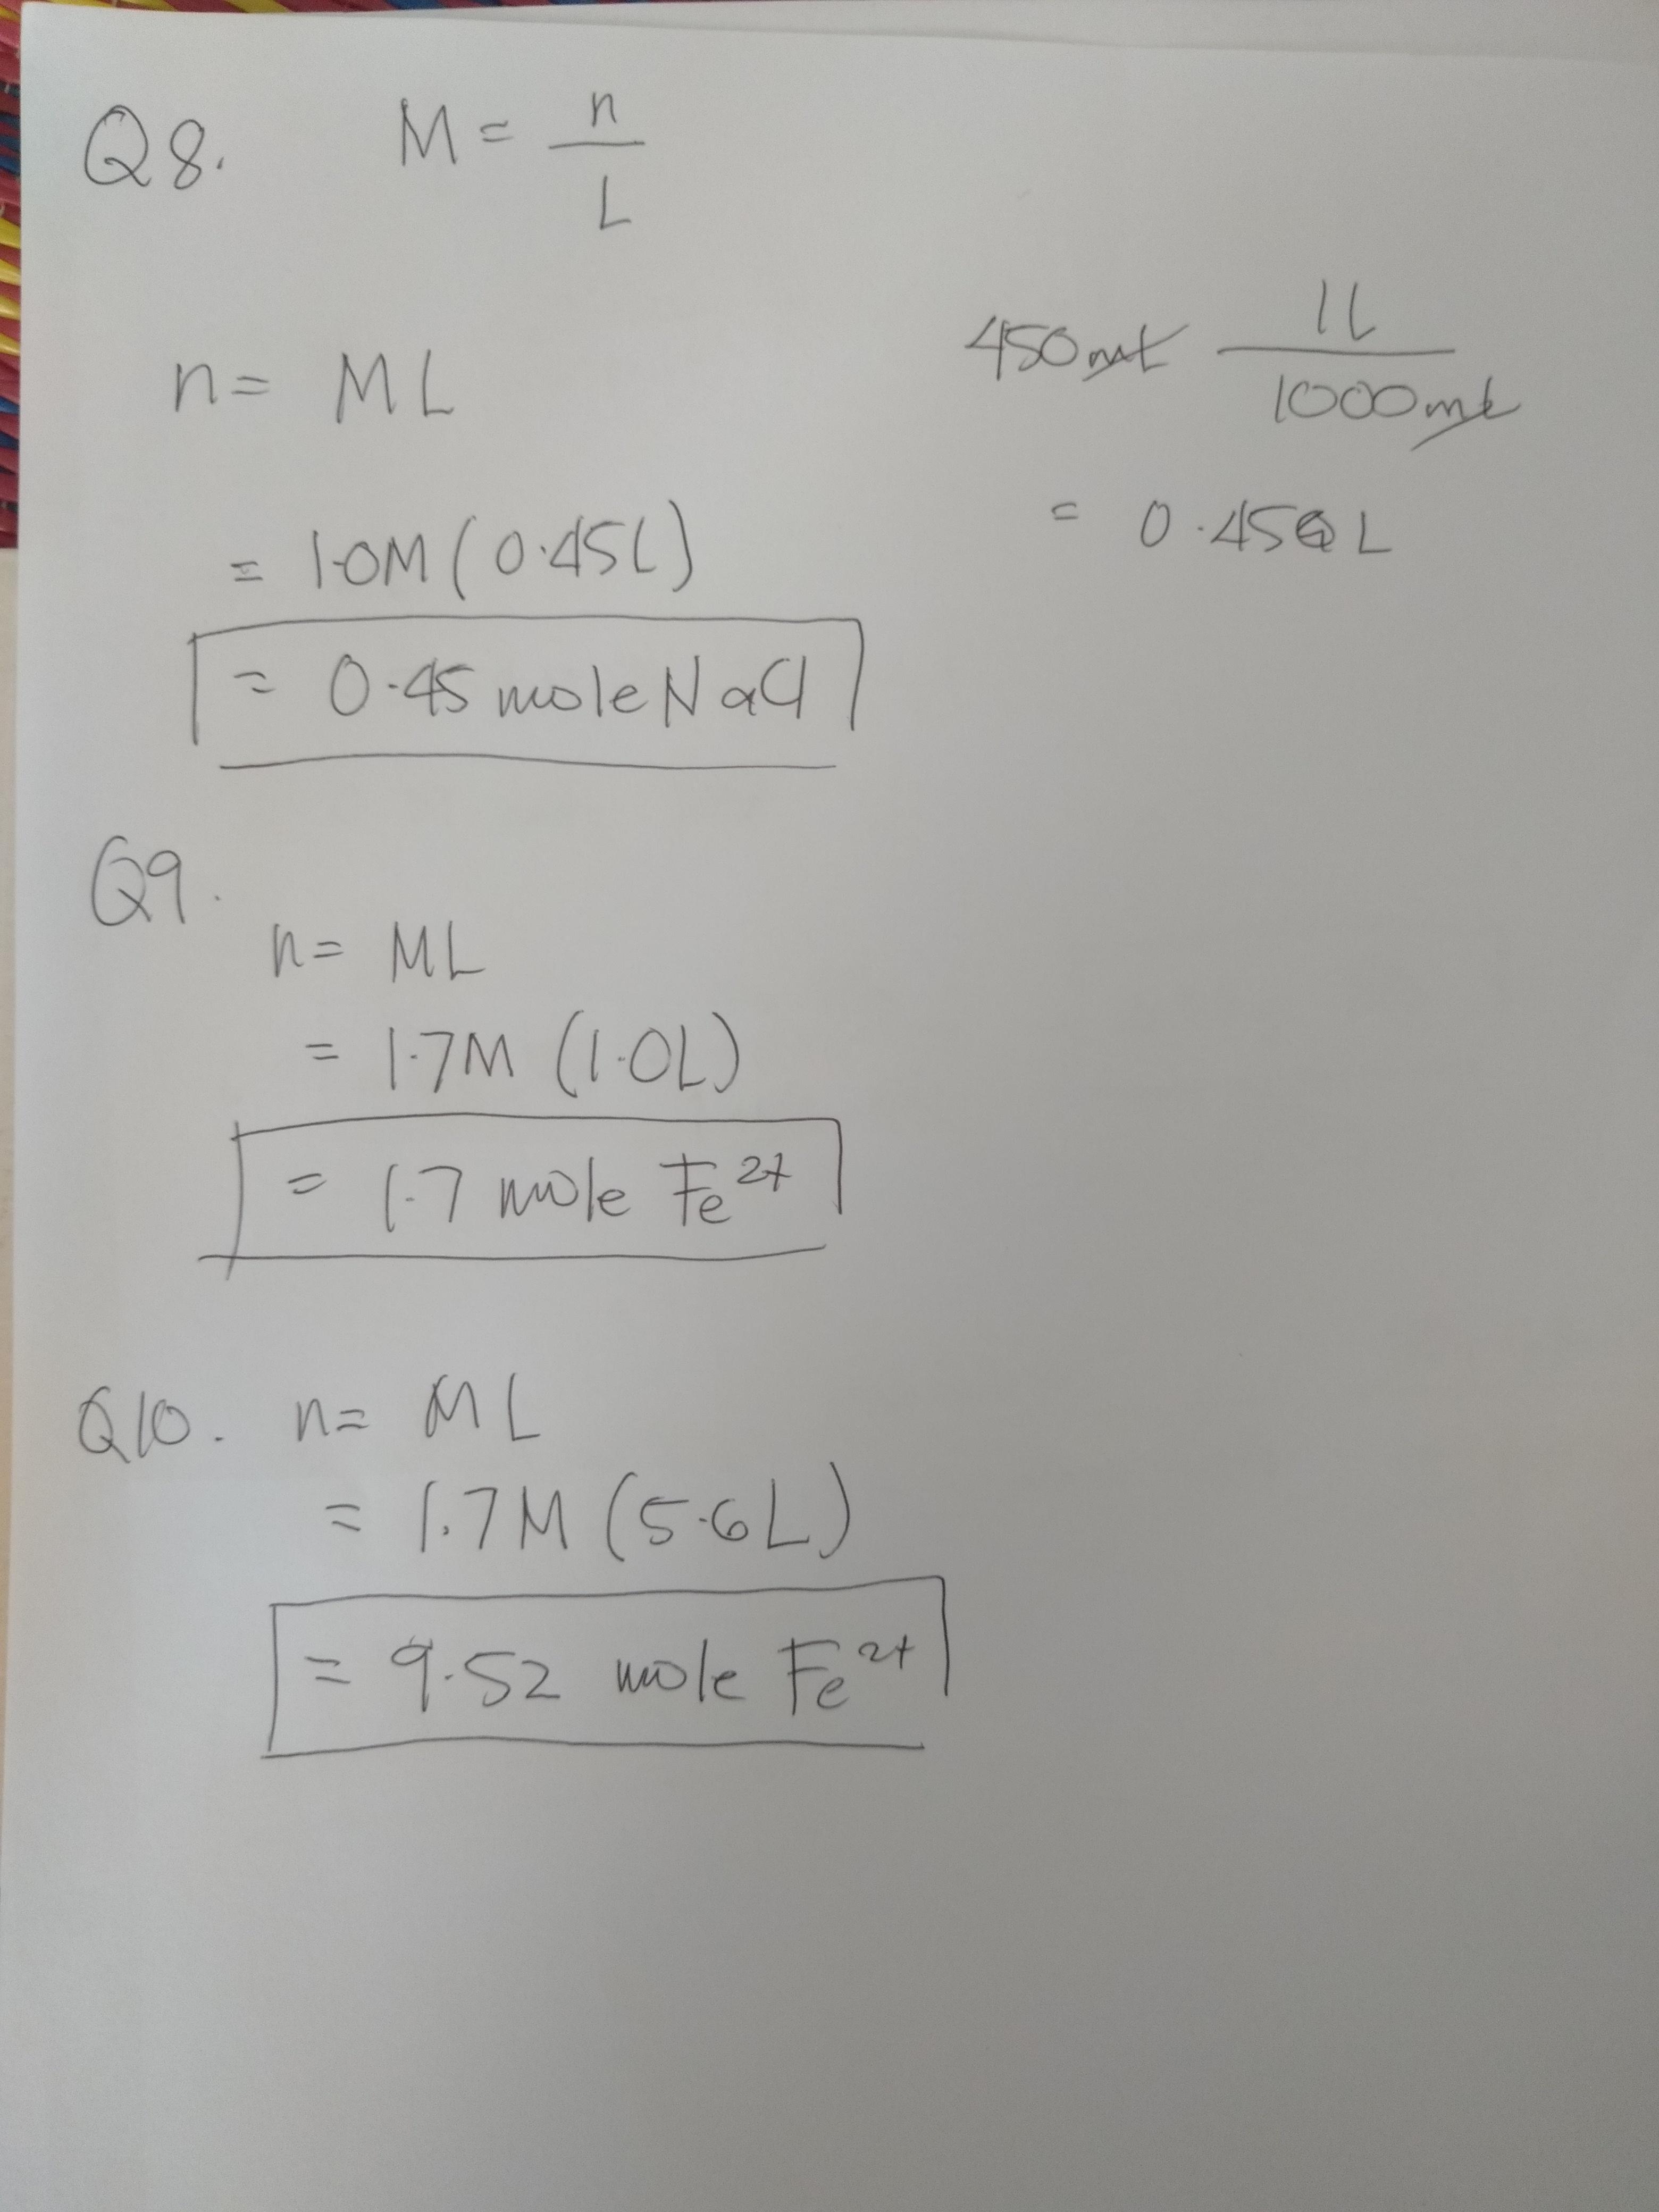 Q8. M = n
L
n = ML
450mL 1L
1000mL
= 0.450 L
= 1.0M (0.45L)
= 0.45 mole NaCl
Q9.
n = ML
= 1.7M (1.0L)
= 1.7 mole Fe²⁺
Q10. n = ML
= 1.7M (5.6L)
= 9.52 mole Fe²⁺